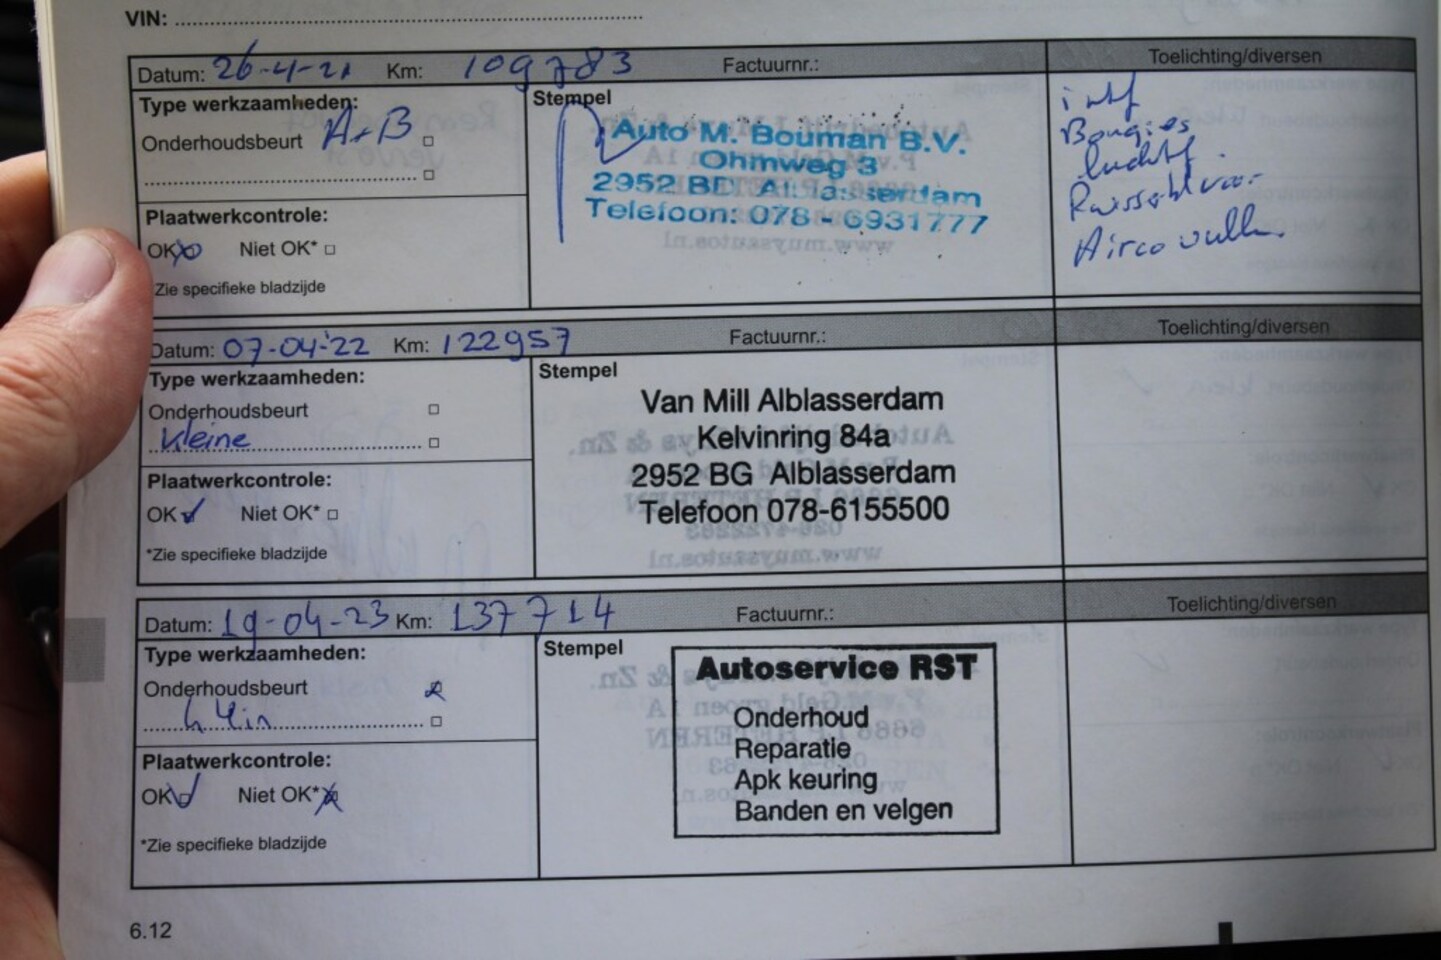 VIN:
Datum: 26-4-21 Km: 109783 Factuurnr.: Toelichting/diversen
Type werkzaamheden:
Onderhoudsbeurt A+B
Plaatwerkcontrole:
OK Niet OK*
*Zie specifieke bladzijde
Stempel
Auto M. Bouman B.V.
Ohmweg 3
2952 BD Alblasserdam
Telefoon: 078-6931777
Bougies
luchtf.
Airco vullen.
Datum: 07-04-'22 Km: 122957 Factuurnr.: Toelichting/diversen
Type werkzaamheden:
Onderhoudsbeurt
Kleine
Plaatwerkcontrole:
OK Niet OK*
*Zie specifieke bladzijde
Stempel
Van Mill Alblasserdam
Kelvinring 84a
2952 BG Alblasserdam
Telefoon 078-6155500
Datum: 19-04-23 Km: 137714 Factuurnr.: Toelichting/diversen
Type werkzaamheden:
Onderhoudsbeurt
Plaatwerkcontrole:
OK Niet OK*
*Zie specifieke bladzijde
Stempel
Autoservice RST
Onderhoud
Reparatie
Apk keuring
Banden en velgen
6.12